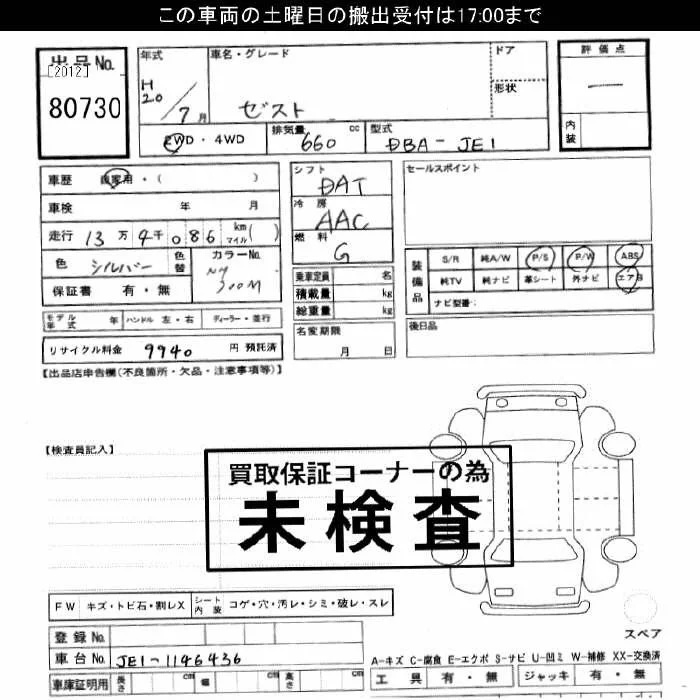 この車両の土曜日の搬出受付は17:00まで
出品No.
[2012]
80730
年式
H20/7月
車名・グレード
ゼスト
ドア
形状
評価点
内装
2WD・4WD
排気量
660 cc
型式
DBA-JE1
車歴 自家用・( )
車検 年 月
走行 13万4千086 km マイル( )
色 シルバー
色替
カラーNo.
NH 700M
保証書 有・無
モデル年式 年 ハンドル 左・右 ディーラー・並行
リサイクル料金 9940 円 預託済
シフト
DAT
冷房
AAC
燃料
G
乗車定員 名
積載量 kg
総重量 kg
名変期限
月 日
セールスポイント
装備品
S/R 純A/W P/S P/W ABS
純TV 純ナビ 革シート 外ナビ エアB
ナビ型番:
後日品
【出品店申告欄(不良箇所・欠品・注意事項等)】
【検査員記入】
買取保証コーナーの為
未検査
FW キズ・トビ石・割レX シート内装 コゲ・穴・汚レ・シミ・破レ・スレ
登録No.
車台No. JE1-1146436
車庫証明用 長さ cm 幅 cm 高さ cm
スペア
A-キズ C-腐食 E-エクボ S-サビ U-凹ミ W-補修 XX-交換済
工具 有・無 ジャッキ 有・無